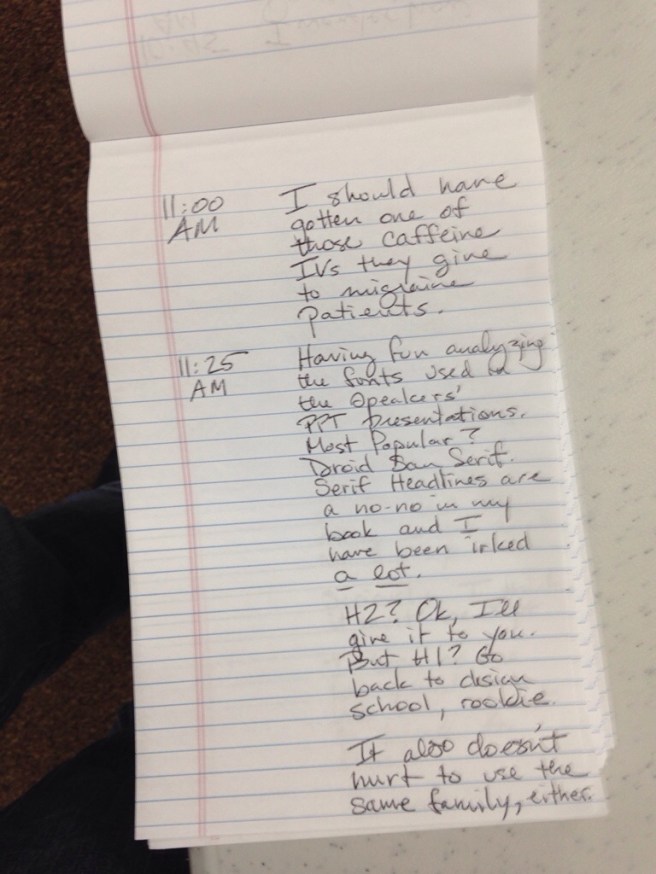 11:00
AM
I should have
gotten one of
those caffeine
IVs they give
to migraine
patients.
11:25
AM
Having fun analyzing
the fonts used in
the speakers'
PPT presentations.
Most Popular?
Droid San Serif.
Serif Headlines are
a no-no in my
book and I
have been irked
a lot.
H2? Ok, I'll
give it to you.
But H1? Go
back to design
school, rookie.
It also doesn't
hurt to use the
same family, either.